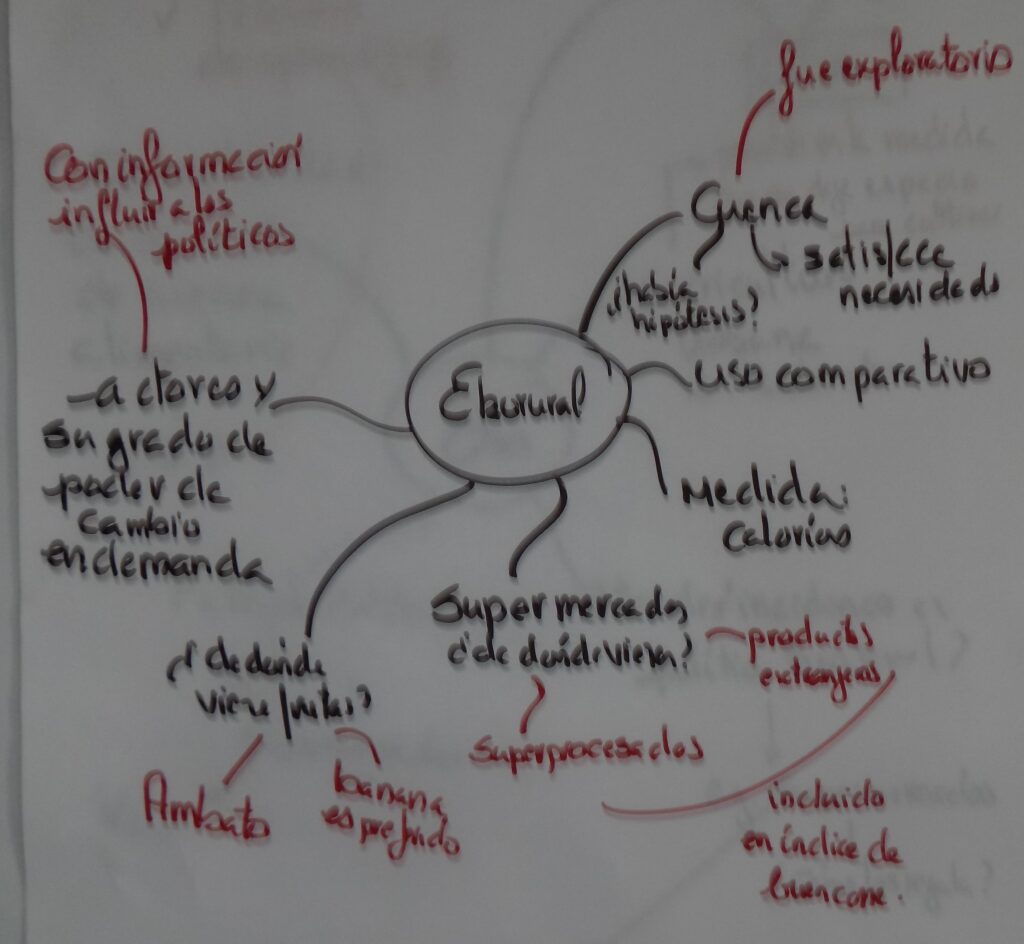 fue exploratorio
Con información
influir a los
políticos
Cuenca
satisface
necesidads
¿había
hipótesis?
uso comparativo
Ekorural
actores y
su grado de
poder de
cambio
en demanda
Medida:
calorías
Supermercados
¿de dónde viene?
productos
extranjeros
¿de dónde
viene frutas?
Superprocesados
Ambato
banana
es prefrido
incluido
en índice de
buen come.